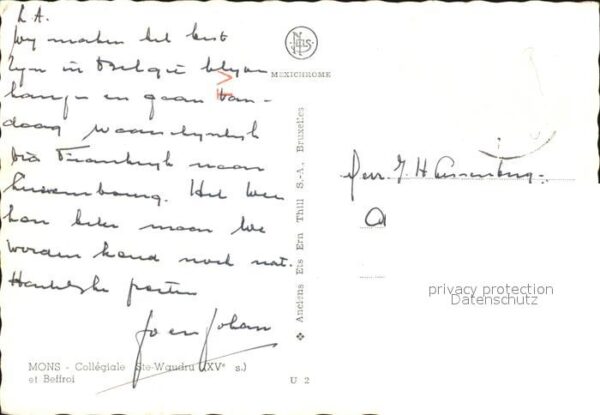 L.A.
Wij maken het best
Zijn in België blijven
hangen en gaan van-
daag waarschijnlijk
via Frankrijk naar
Luxembourg. Het weer
kan beter maar we
worden hand noch nat.
Hartelijke groeten
Jo en Johan
MONS - Collégiale Ste-Waudru (XVe s.)
et Beffroi
U 2
NELS
MEXICHROME
Anciens Ets Ern Thill S.-A., Bruxelles
J. H.
privacy protection
Datenschutz